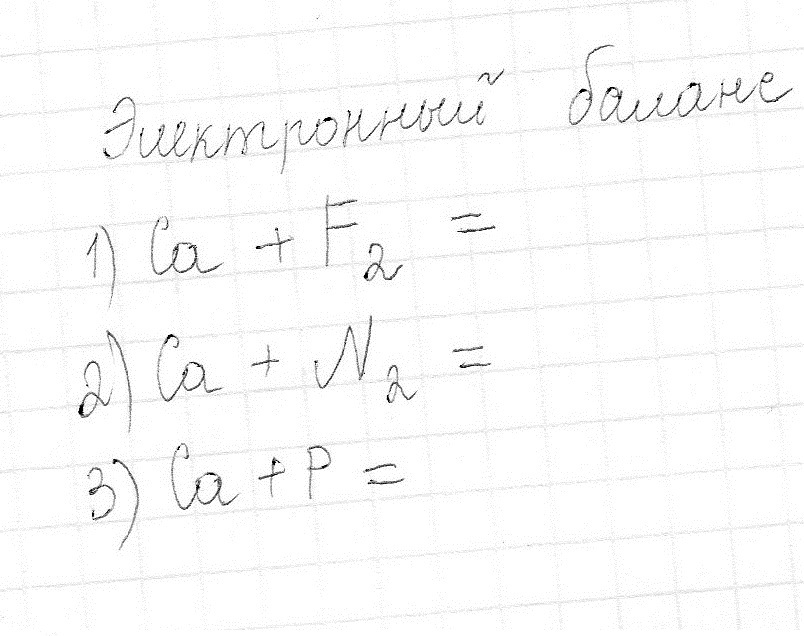 Электронный баланс
1) Ca + F₂ =
2) Ca + N₂ =
3) Ca + P =